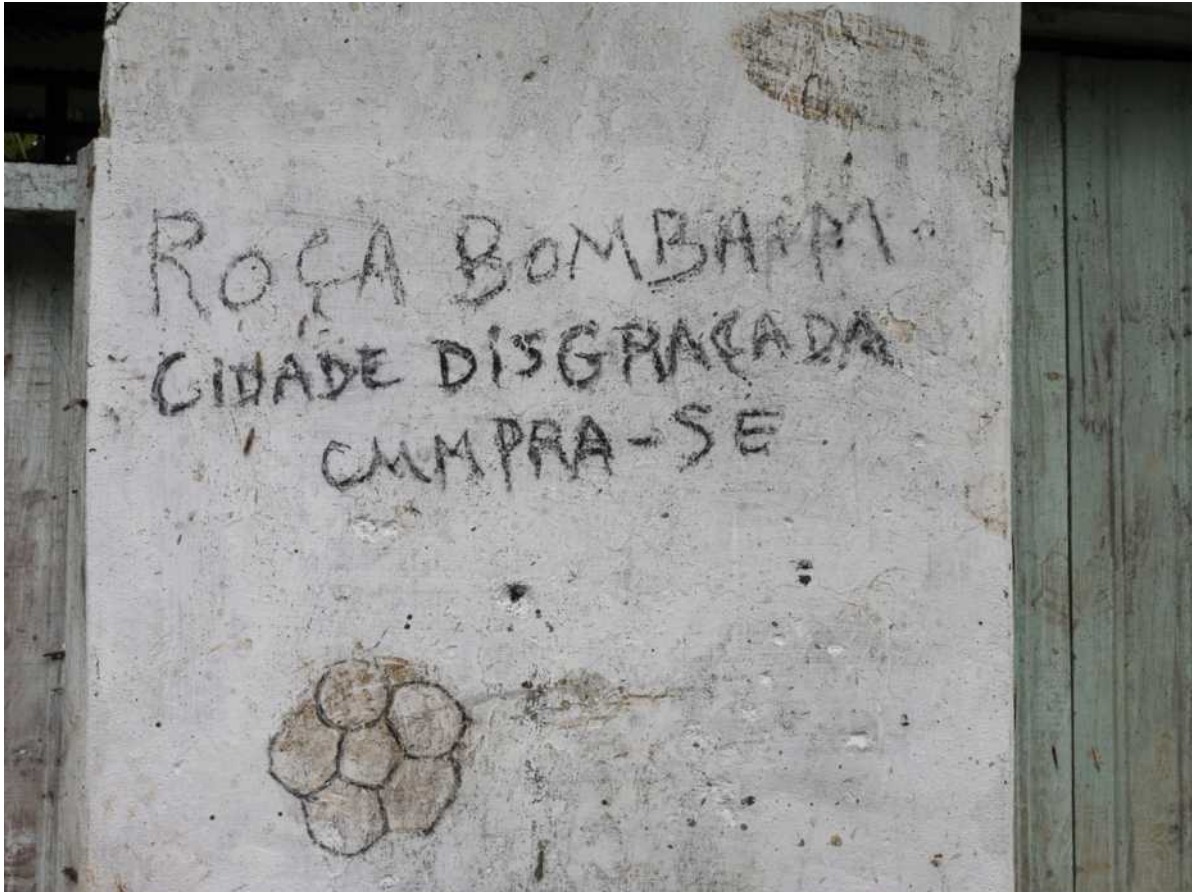 ROÇA BOMBAIM
CIDADE DISGRAÇADA
CUMPRA-SE